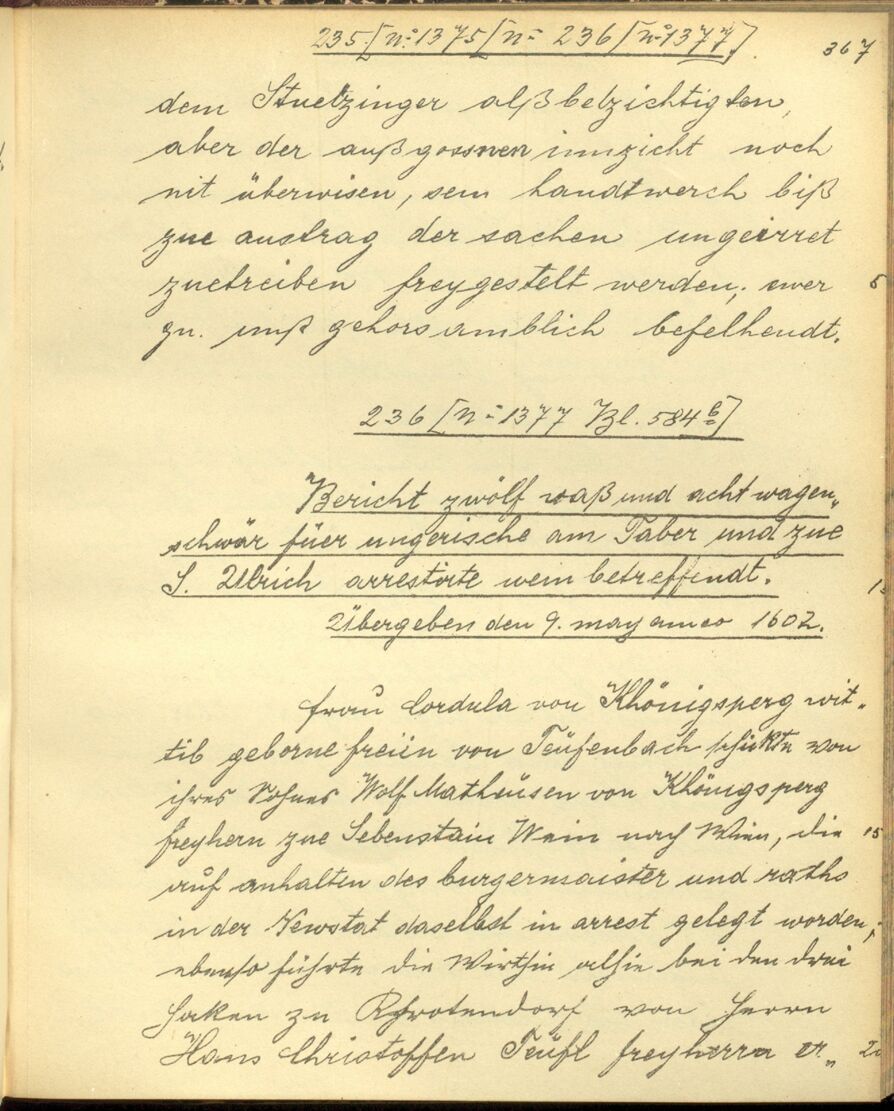 235 [N° 1375 [N° 236 [N° 1377]
367
dem Stuelzinger alß bezichtigten,
aber der außgossnen innzicht noch
nit überwisen, sein handtwerch biß
zue austrag der sachen ungeirret
zuetreiben freygestelt werden; ewer 5
gn. unß gehorsamblich befelhendt.
236 [N° 1377 Bl. 584b]
Bericht zwölf vaß und acht wagen„
schwär füer ungerische am Taber und zue
S. Ulrich arrestirte wein betreffendt. 1
Übergeben den 9. may anno 1602.
Frau Cordula von Khönigsperg wit„
tib geborne freiin von Teüfenbach schickte von
ihres Sohnes Wolf Matheüsen von Khönigsperg
freyhern zue Sebenstain Wein nach Wien, die 15
auf anhalten des burgermaister und raths
in der Newstat daselbst in arrest gelegt worden;
ebenso führte die Wirthin alhie bei den drei
Haken zu Rhrotendorf von Herrn
Hans Christoffen Teüfl freyherrn er„ 2